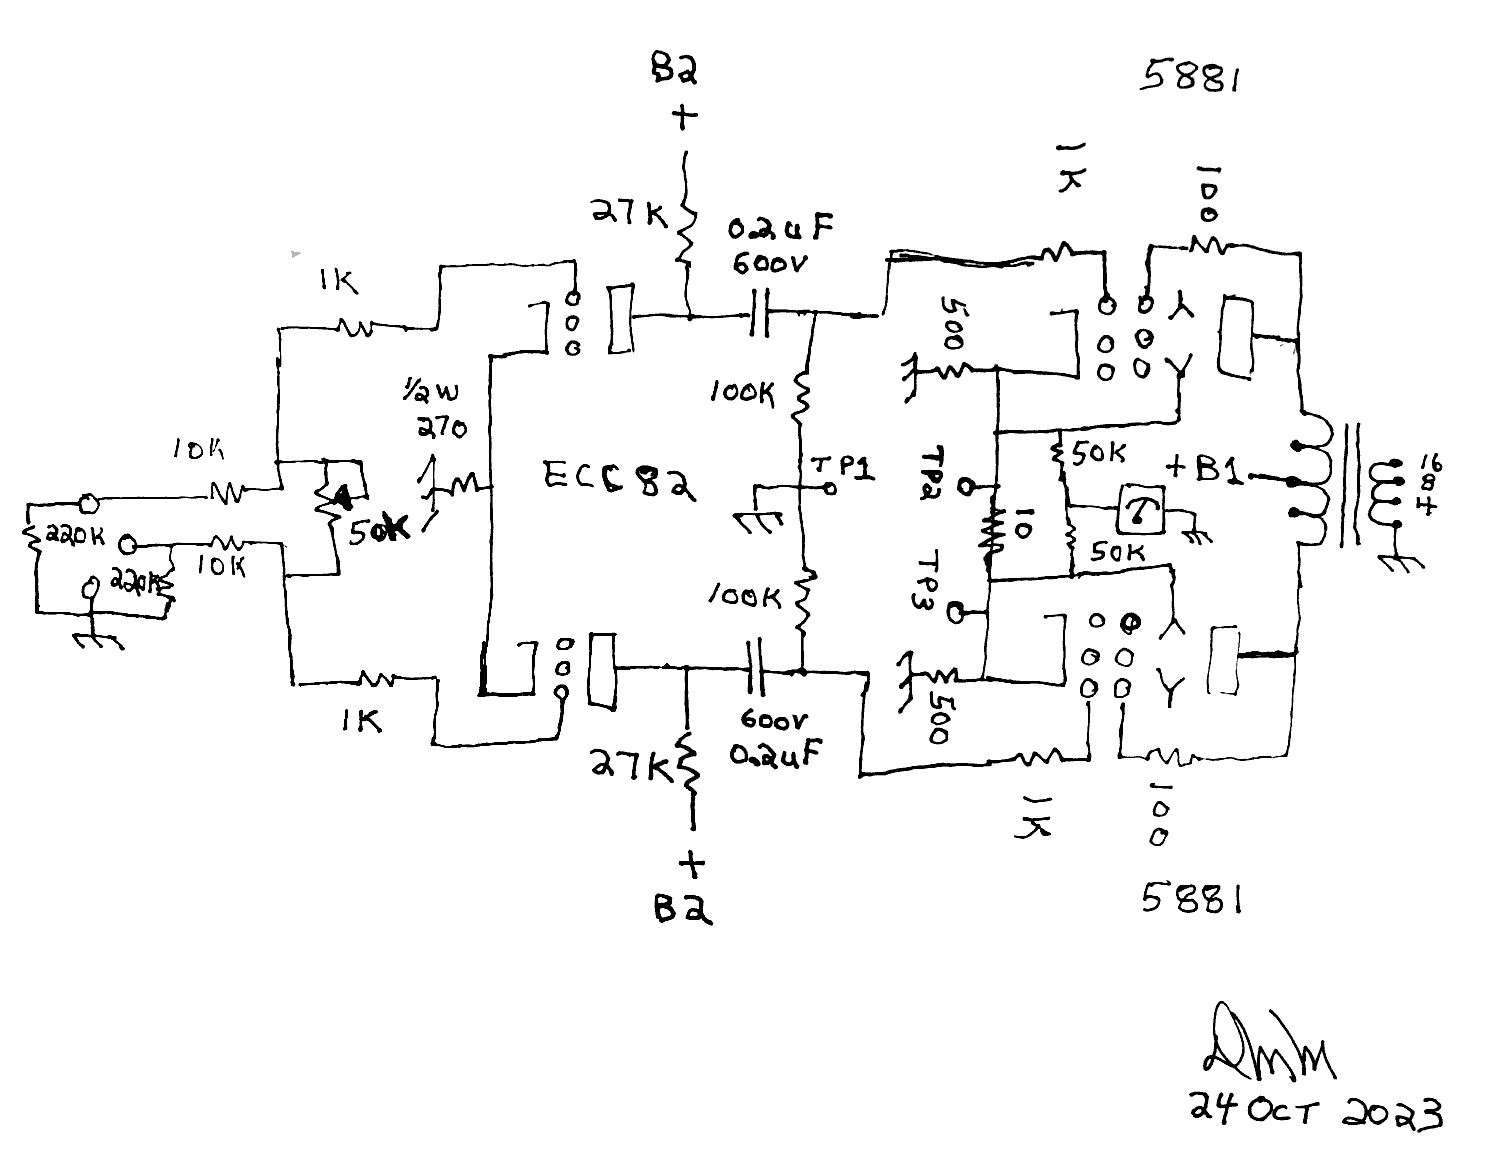 B2
+
5881
1K
100
27K
0.2uF
600V
1K
500
1/2W
270
100K
10K
ECC82
TP1
TP2
50K
+B1
16
8
4
50K
220K
10
10K
220K
50K
TP3
100K
1K
600V
0.2uF
500
27K
1K
100
+
B2
5881
24 OCT 2023